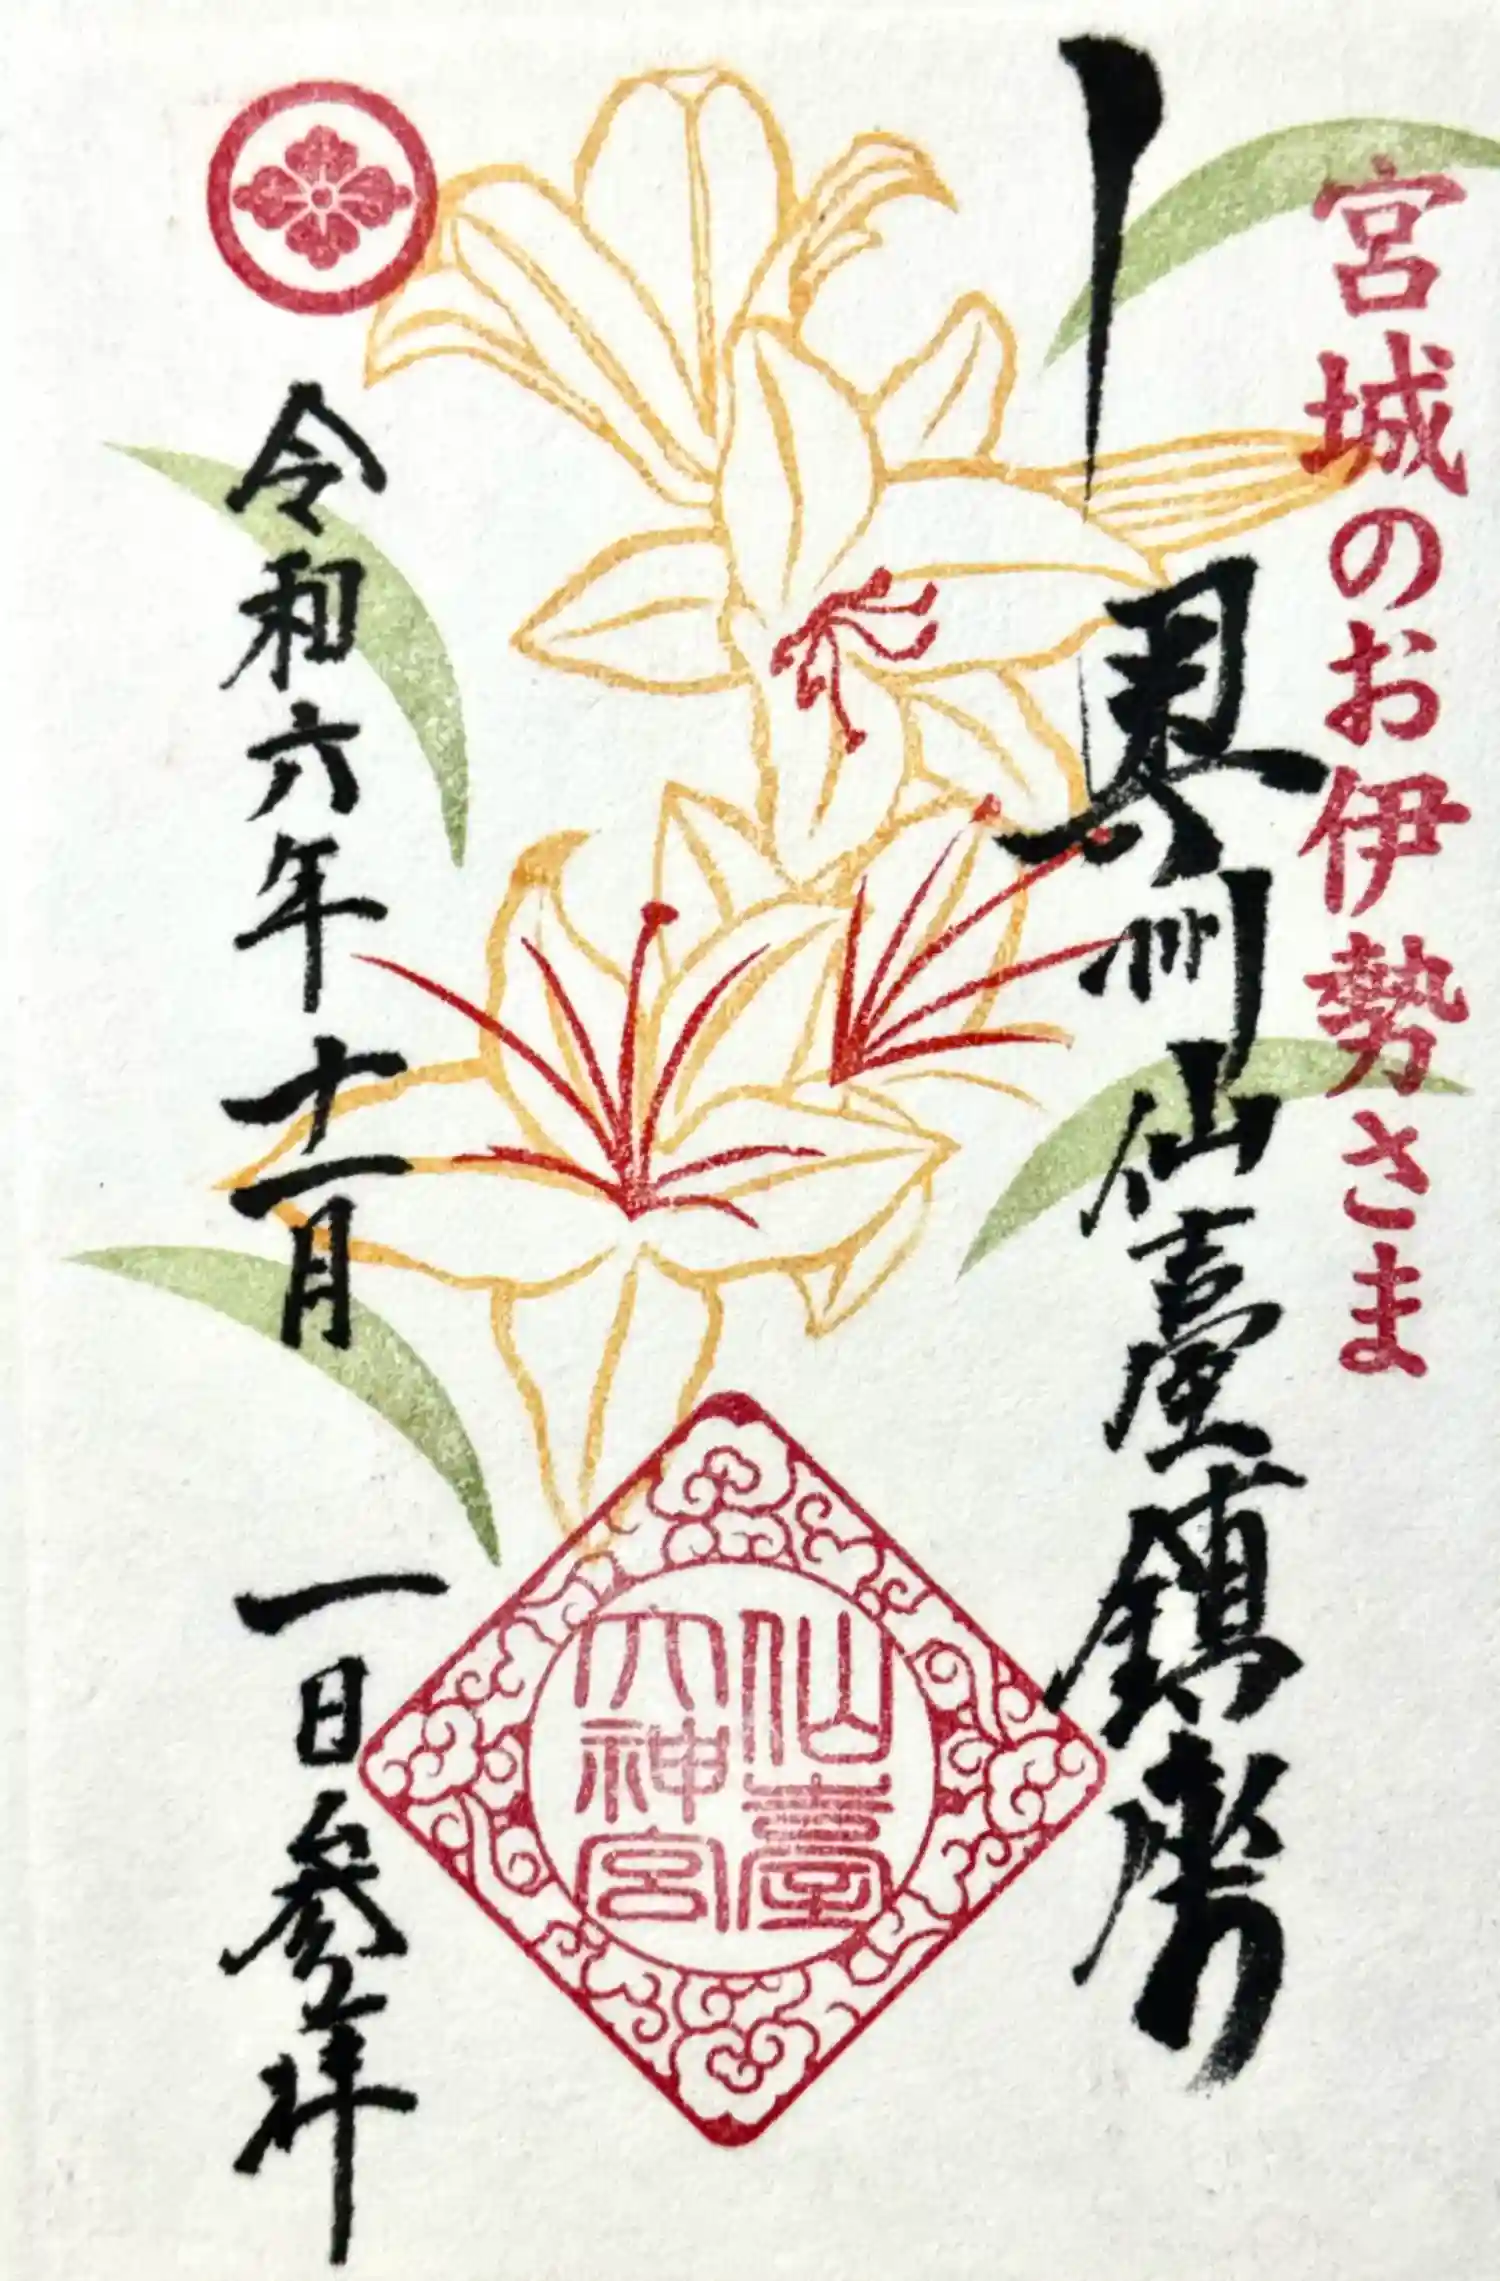 宮城のお伊勢さま
奥州仙臺鎮座
仙臺
大神宮
令和六年十一月一日参拝